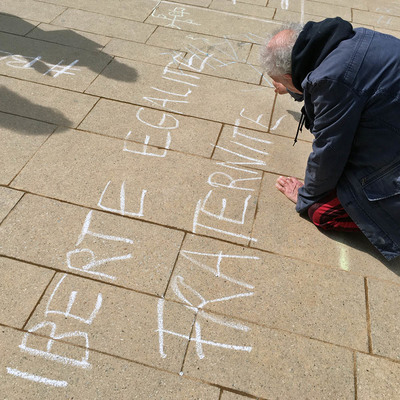 LIBERTÉ ÉGALITÉ
FRATERNITÉ